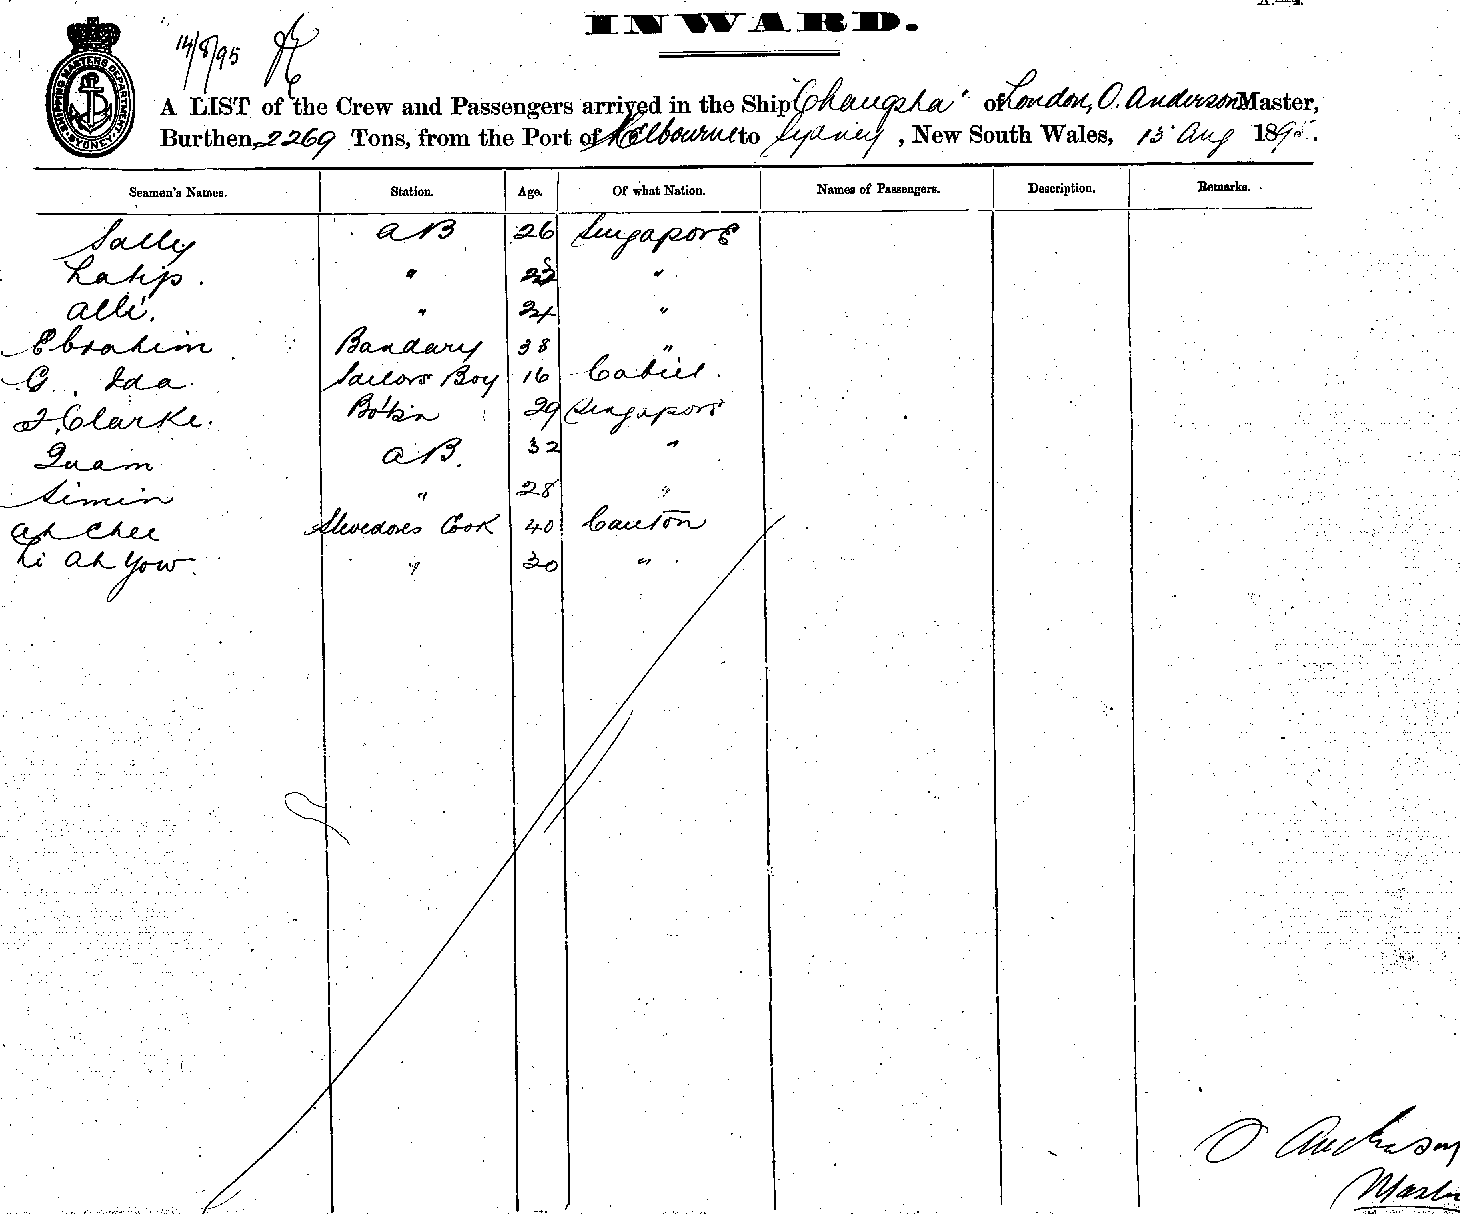 INWARD.
14/8/95
SHIPPING MASTERS DEPARTMENT SYDNEY
A LIST of the Crew and Passengers arrived in the Ship "Changsha" of London, O. Anderson Master,
Burthen, 2269 Tons, from the Port of Melbourne to Sydney, New South Wales, 13 Aug 1895.
Seamen's Names. Station. Age. Of what Nation. Names of Passengers. Description. Remarks.
Sally AB 26 Singapore
Latip. " "
Alli. " 24 "
Ebrahim Bandary 38 "
G. Ida Sailors Boy 16
F. Clarke. 29 Singapore
AB. 32 "
Simin " 28 "
Ah Chee Stevedores Cook 40 Canton
Li Ah Yow. " 30 "
O Anderson
Master